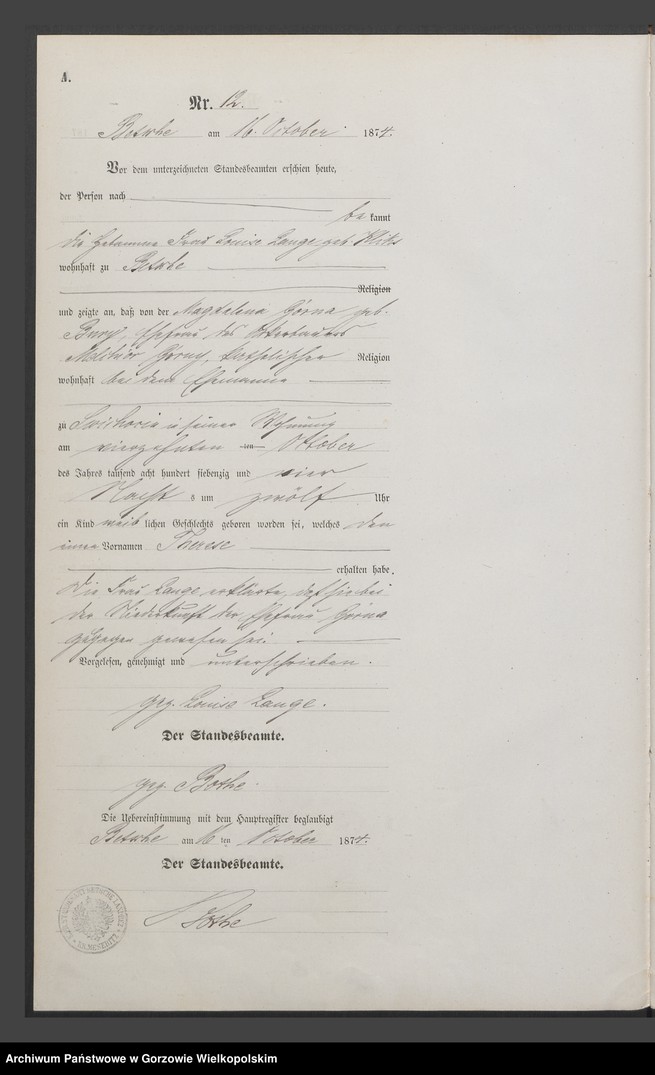 A.
Nr. 12.
Betsche am 16. October 1874.
Vor dem unterzeichneten Standesbeamten erschien heute,
der Person nach
be kannt
die Hebamme Frau Louise Lange geb.
wohnhaft zu Betsche
Religion
und zeigte an, daß von der Magdalena Górna geb.
Ehefrau des
Górny, katholischer Religion
wohnhaft bei dem Ehemanne
zu in seiner Wohnung
am vierzehnten ten October
des Jahres tausend acht hundert siebenzig und vier
Nacht s um zwölf Uhr
ein Kind weib lichen Geschlechts geboren worden sei, welches den
einen Vornamen Therese
erhalten habe.
Die Frau Lange erklärte, daß sie bei
der Niederkunft der Ehefrau Górna
zugegen gewesen sei.
Vorgelesen, genehmigt und unterschrieben.
gez. Louise Lange.
Der Standesbeamte.
gez. Bothe.
Die Uebereinstimmung mit dem Hauptregister beglaubigt
Betsche am 16 ten October 1874.
Der Standesbeamte.
Bothe
Archiwum Państwowe w Gorzowie Wielkopolskim